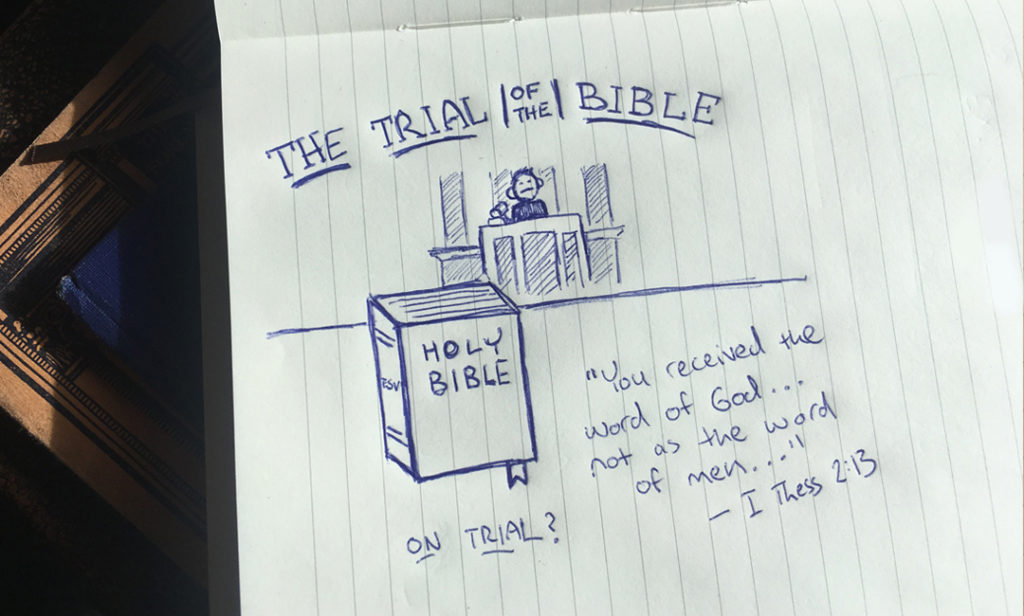 THE TRIAL OF THE BIBLE
HOLY
BIBLE
ESV
"You received the
word of God...
not as the word
of men..."
— I Thess 2:13
ON TRIAL?